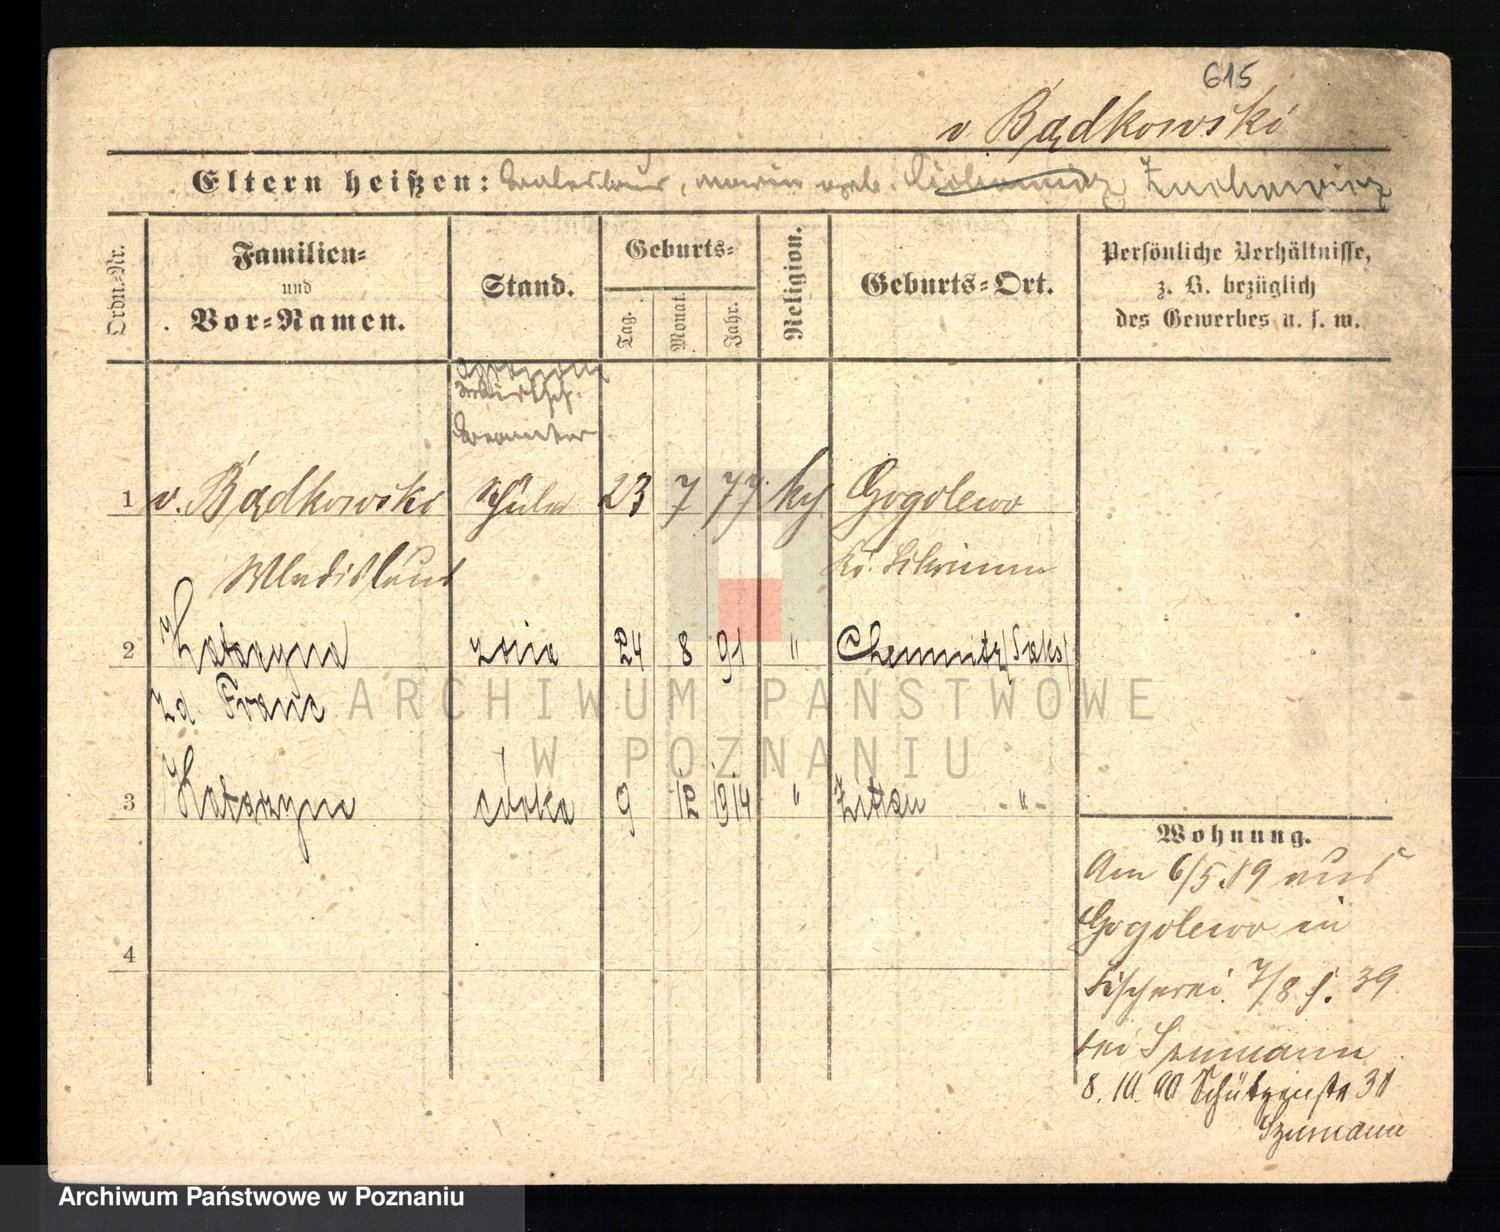 615
v Bądkowski
Eltern heißen: Boleslaus, Maria geb. Zuchowicz
Ordn.-Nr.
Familien-
und
Vor-Namen.
Stand.
Geburts-
Tag.
Monat.
Jahr.
Religion.
Geburts-Ort.
Persönliche Verhältnisse,
z. B. bezüglich
des Gewerbes u. s. w.
Wirtsch.
Beamter
1 v. Bądkowski Schüler 23 7 77 kη Gogolewo
Wladislaus Kr. Schrimm
2 Katarzyna żona 24 8 91 " Chemnitz (Saks)
zd. Franc
3 Katarzyna córka 9 12 1914 " Zittau -"-
4
Wohnung.
Am 6/5 89 aus
Gogolewo in
Fischerei 7/8 f. 39
bei Szumann
8. 10. 90 Schützenstr 31
Szumann
ARCHIWUM PAŃSTWOWE
W POZNANIU
Archiwum Państwowe w Poznaniu